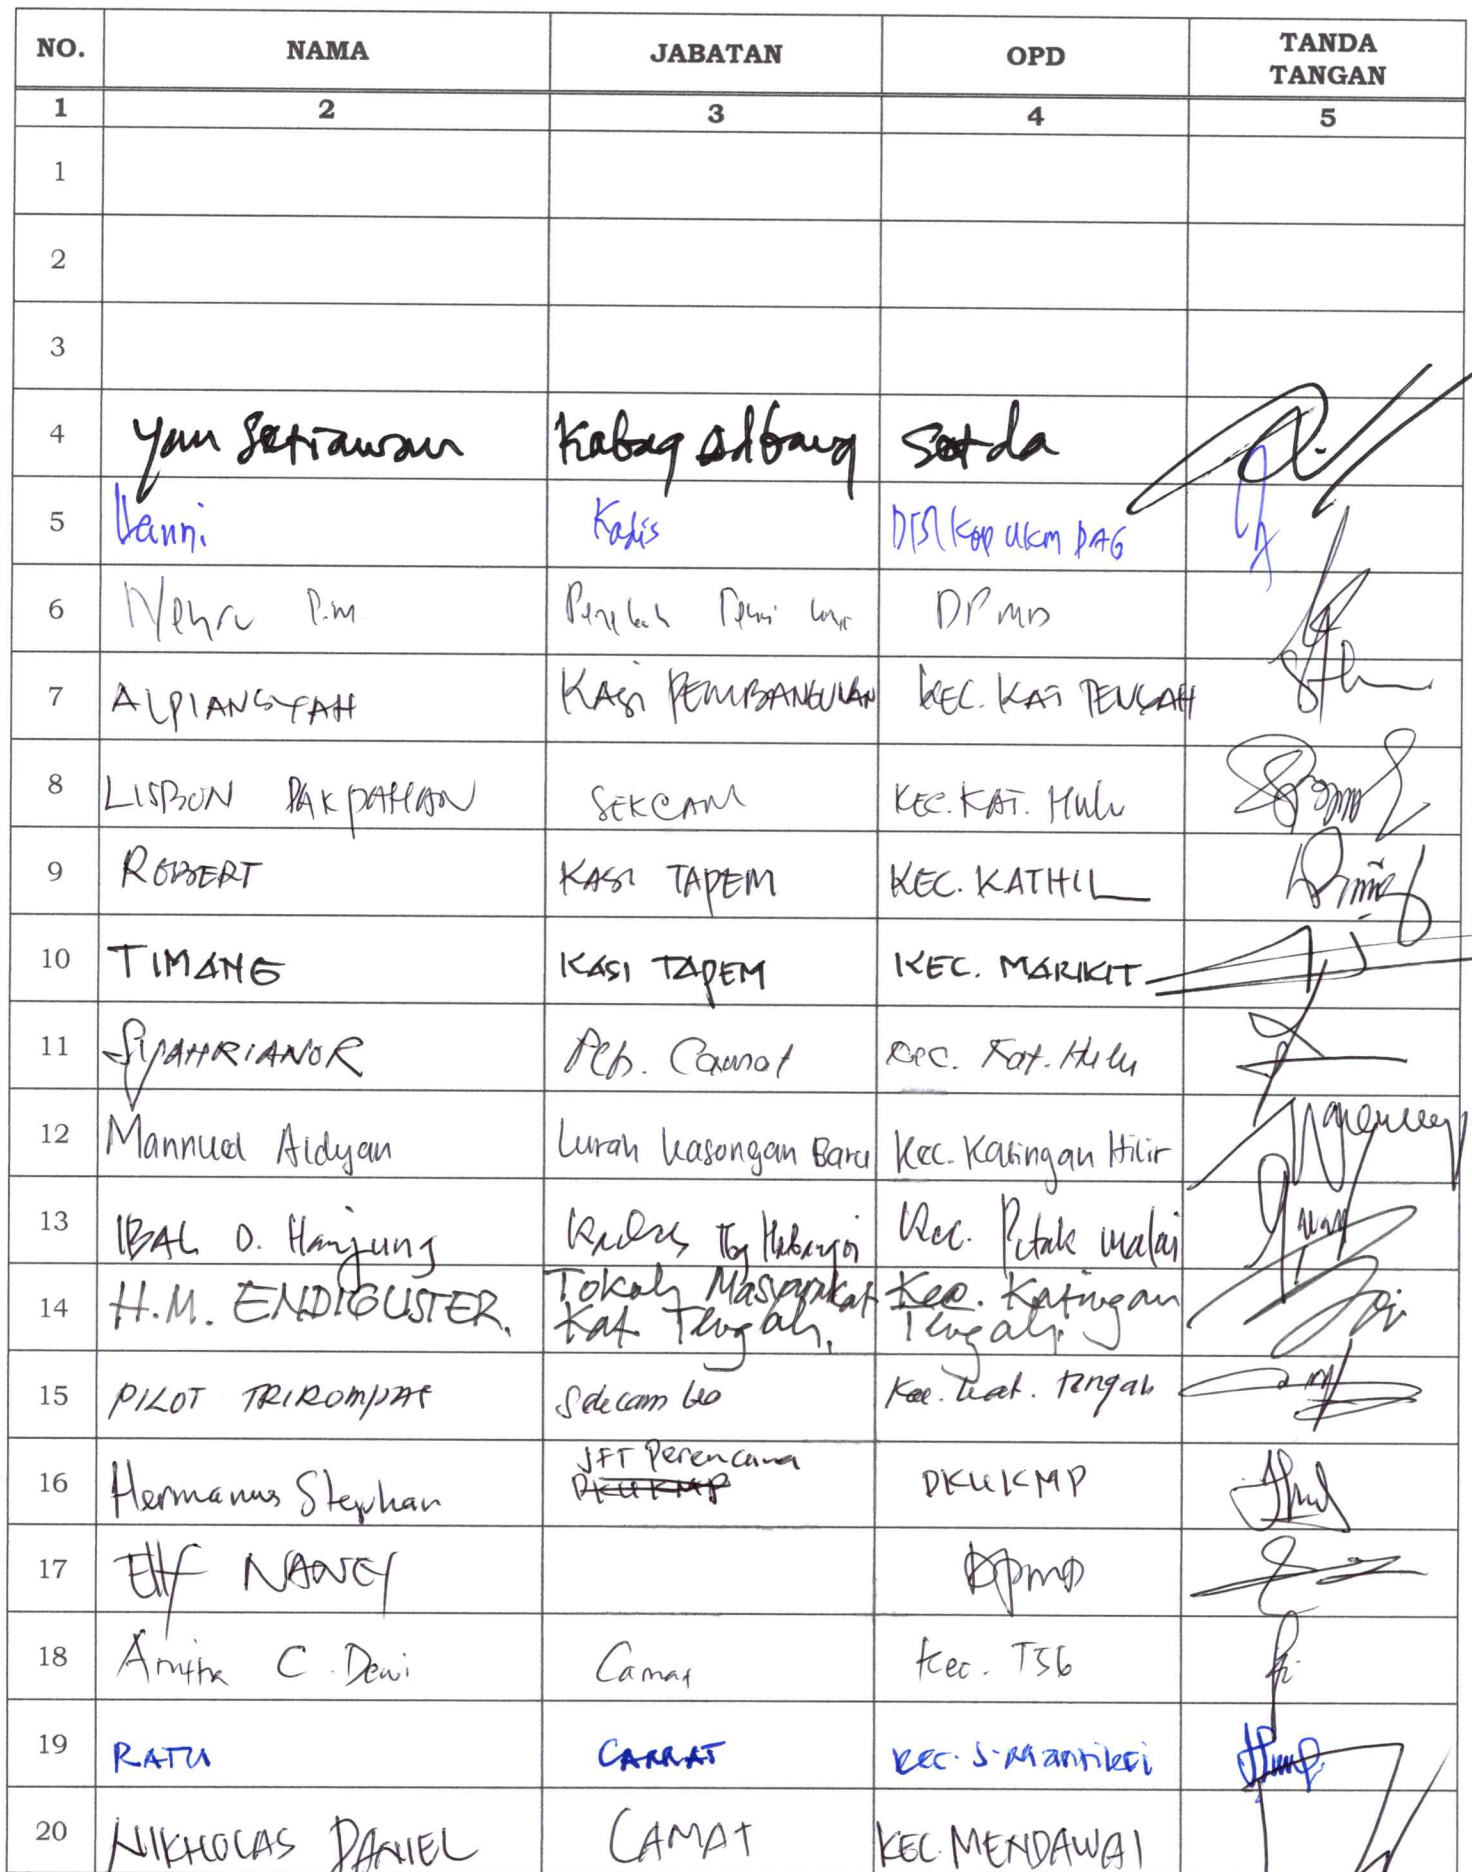 NO. NAMA JABATAN OPD TANDA TANGAN
1 2 3 4 5
1
2
3
4 Yan Setiawan Kabag Adbang Setda
5 Kadis DIS KOP UKM DAG
6 P.M. DPMD
7 ALPIANSYAH KASI PEMBANGUNAN KEC. KAT TENGAH
8 LISBON PAKPAHAN SEKCAM KEC. KAT. Hulu
9 ROBERT KASI TAPEM KEC. KATHIL
10 TIMANG KASI TAPEM KEC. MARIKIT
11 SYAHRIANOR Plh. Camat Kec. Kat. Hulu
12 Mannuel Aldyan Lurah Kasongan Baru Kec. Katingan Hilir
13 IBAL D. Hanjung Kades Kec. Petak malai
14 H.M. ENDIGUSTER. Tokoh Masyarakat Kat. Tengah. Kec. Katingan Tengah.
15 PILOT TRIROMPAS Kec. Kat. tengah
16 Hermanus Stephan JFT Perencana DKUKMP DKUKMP
17 NANCY DPMD
18 C. Dewi Camat Kec. TSG
19 RATU CAMAT Kec. S. Mantikei
20 NIKHOLAS DANIEL CAMAT KEC. MENDAWAI